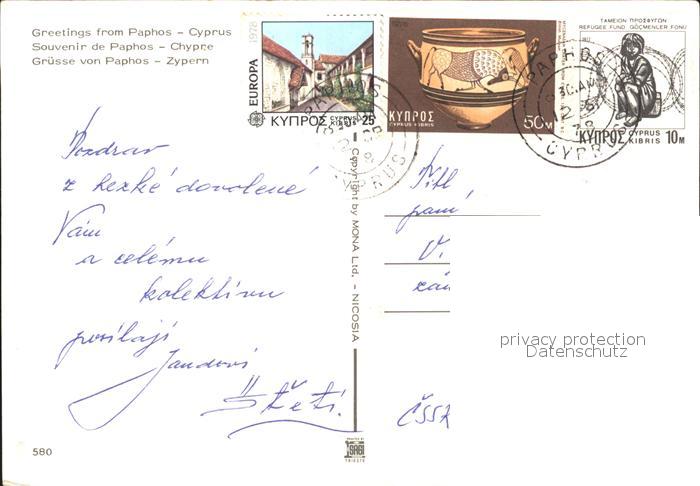 Greetings from Paphos – Cyprus
Souvenir de Paphos – Chypre
Grüsse von Paphos – Zypern
EUROPA 1978
ΚΥΠΡΟΣ CYPRUS KIBRIS 25
1976
ΚΥΠΡΟΣ
CYPRUS KIBRIS
50M
ΤΑΜΕΙΟΝ ΠΡΟΣΦΥΓΩΝ
REFUGEE FUND GÖÇMENLER FONU
1977
ΚΥΠΡΟΣ CYPRUS KIBRIS 10M
PAPHOS
CYPRUS
PAPHOS
30 AU
78
CYPR
Pozdrav
z hezké dovolené
Vám
a celému
kolektivu
posílají
Jandovi
Copyright by MONA Ltd. – NICOSIA
paní
V.
ČSSR
privacy protection
Datenschutz
580
SAGI
TRIESTE